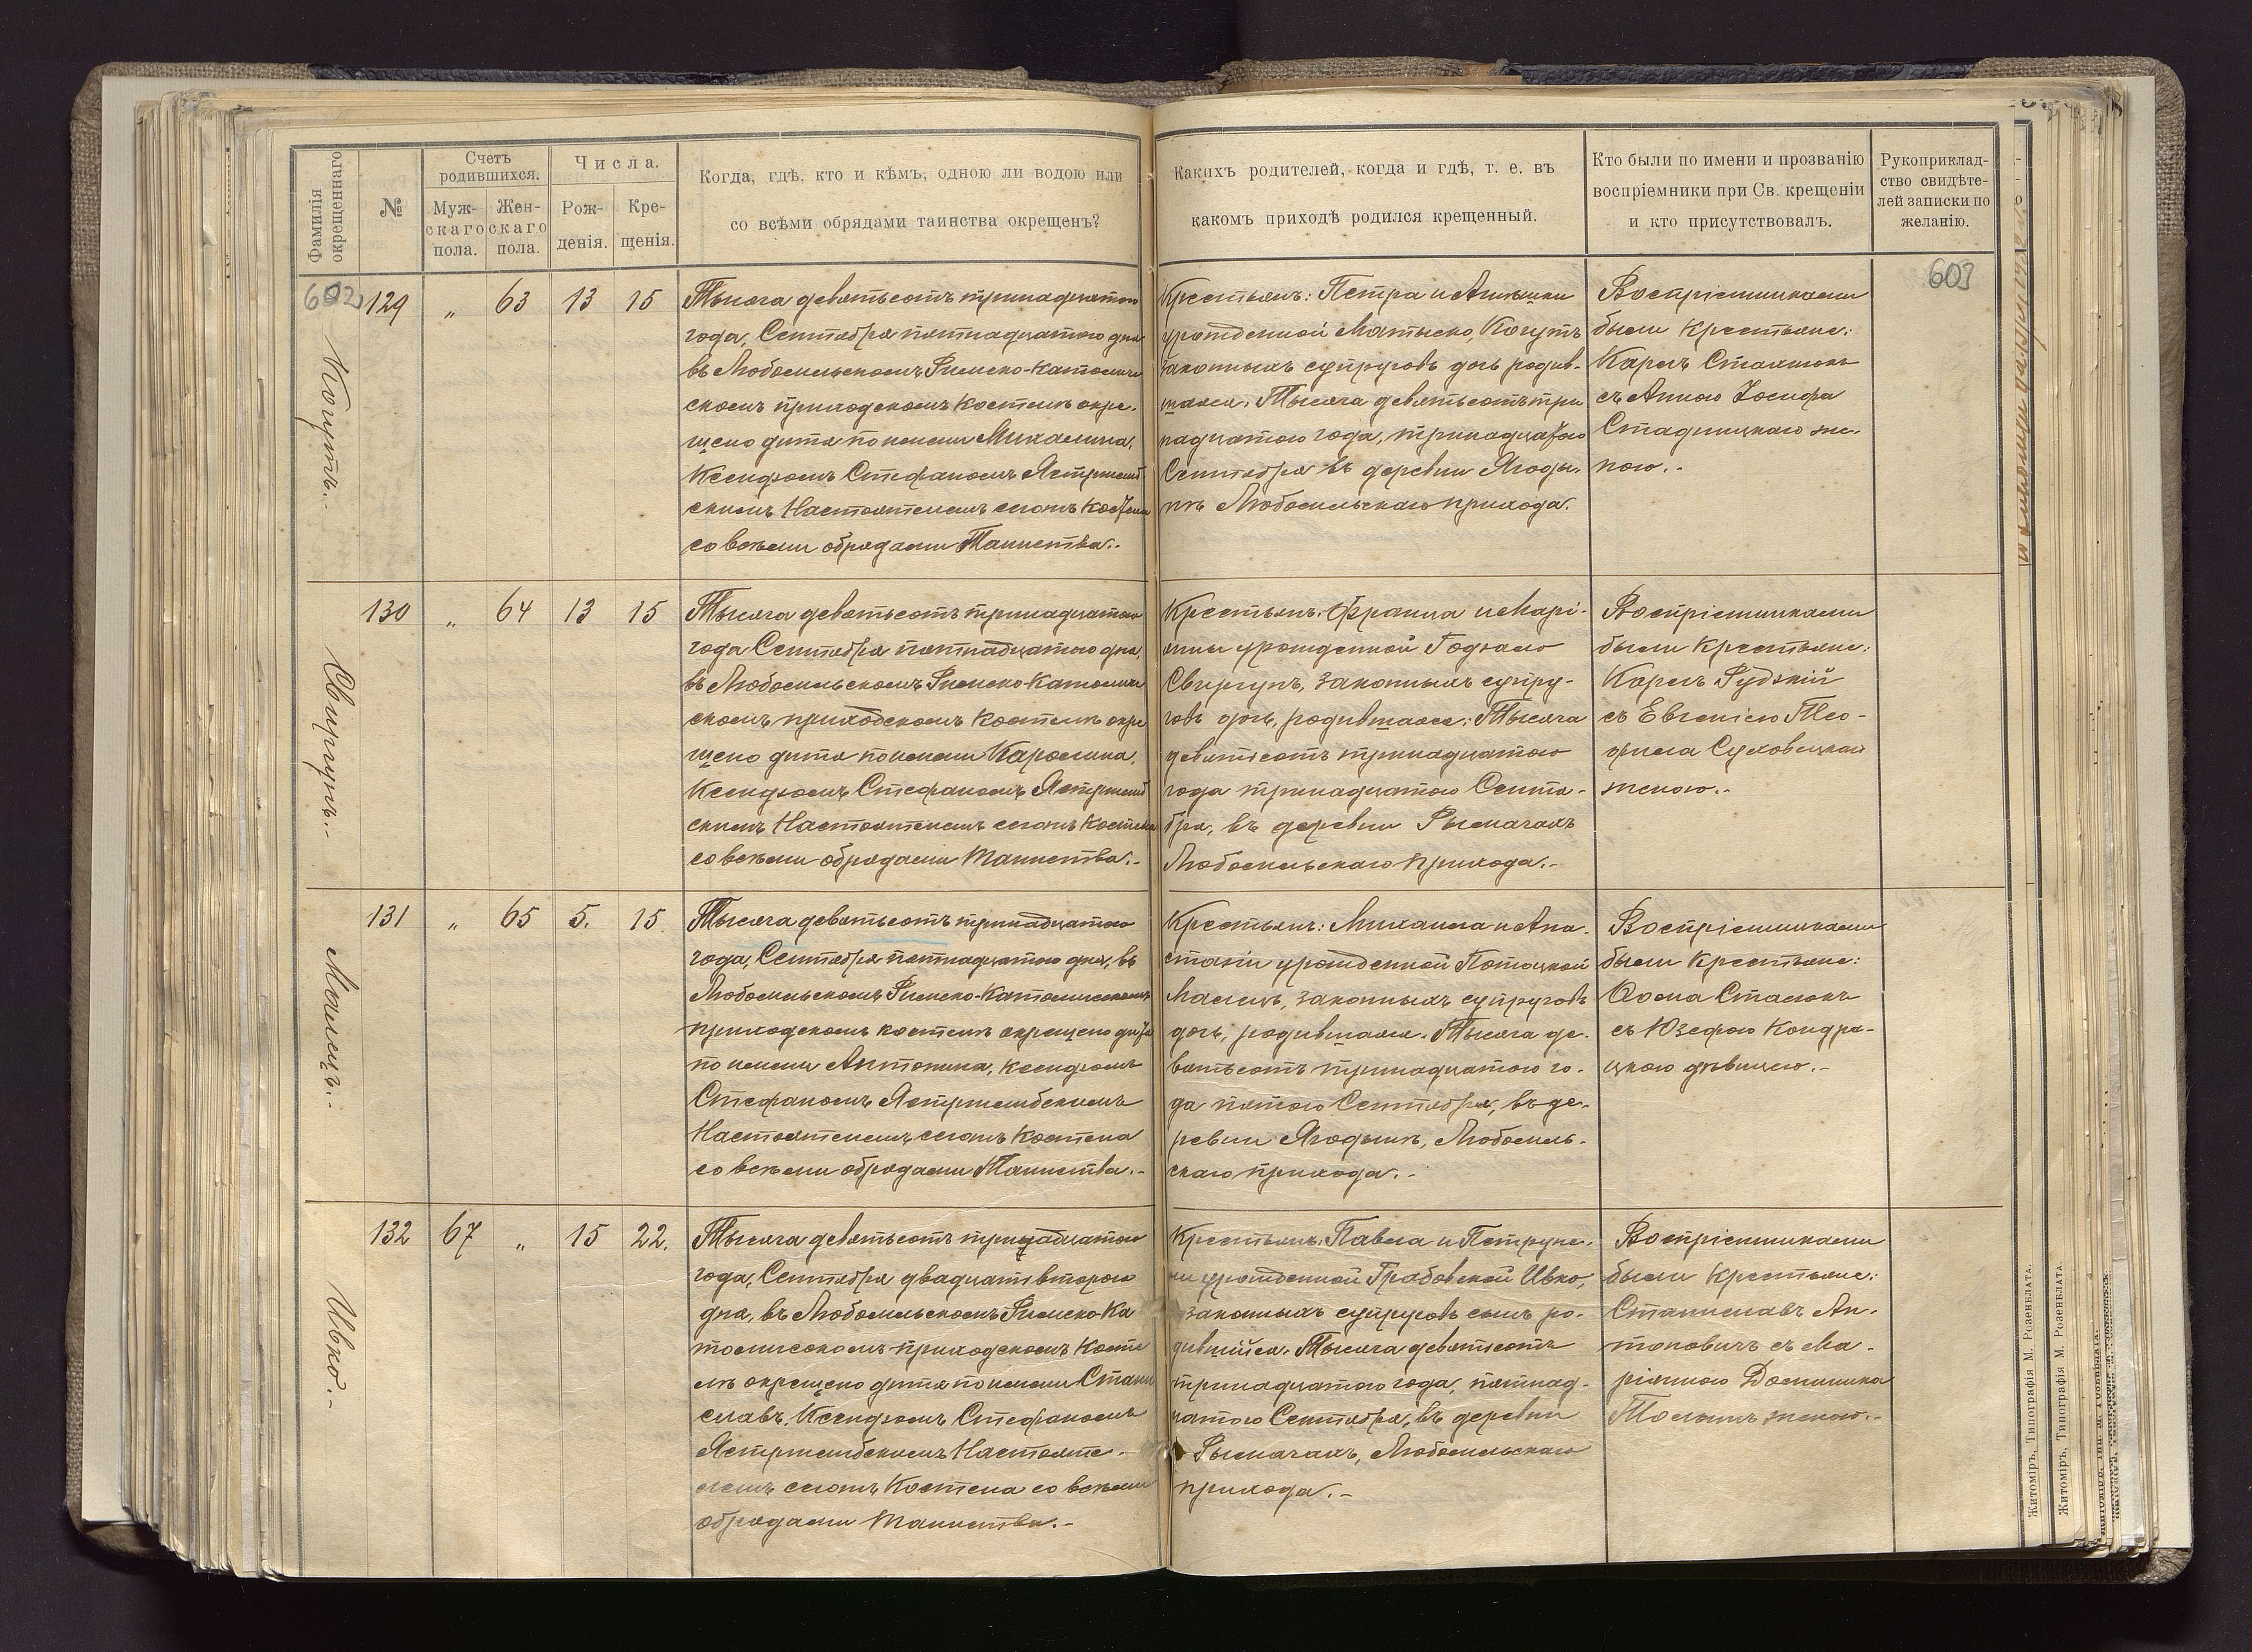 Фамилія окрещеннаго
№
Счетъ родившихся.
Мужскаго пола.
Женскаго пола.
Числа.
Рожденія.
Крещенія.
Когда, гдѣ, кто и кѣмъ, одною ли водою или
со всѣми обрядами таинства окрещенъ?
Какихъ родителей, когда и гдѣ, т. е. въ
какомъ приходѣ родился крещенный.
Кто были по имени и прозванію
воспріемники при Св. крещеніи
и кто присутствовалъ.
Рукоприклад-
ство свидѣте-
лей записки по
желанію.
602
603
Когутъ.-
129 „ 63 13 15
Тысяча девятьсотъ тринадцатого
года, Сентября пятнадцатого дня
въ Любомльскомъ Римско-Католиче
скомъ приходскомъ Костелѣ окре-
щено дитя по имени Михалина,
Ксендзомъ Стефаномъ Ястржемб-
скимъ Настоятелемъ сегожъ Костела
со всѣми обрядами Таинства.-
Крестьянъ: Петра и Агнѣшки
урожденной Матыско, Когутъ
законныхъ супруговъ дочь родив-
шаяся. Тысяча девятьсотъ три
надцатого года, тринадцатого
Сентября въ деревни Ягоды-
нѣ Любомльскаго прихода.
Воспріемниками
были Крестьяне:
Карлъ Стахнюкъ
съ Анною Іосифа
Стадницкаго же-
ною.-
Свиргунъ.-
130 „ 64 13 15
Тысяча девятьсотъ тринадцатого
года Сентября пятнадцатого дня,
въ Любомльскомъ Римско-Католиче
скомъ приходскомъ Костелѣ окре
щено дитя по имени Каролина,
Ксендзомъ Стефаномъ Ястржемб
скимъ Настоятелемъ сегожъ Костела
со всѣми обрядами Таинства.-
Крестьянъ: Франца и Марі-
янны урожденной Годзало
Свиргунъ, законныхъ супру-
говъ дочь, родившаяся: Тысяча
девятьсотъ тринадцатого
года тринадцатого Сентя-
бря, въ деревни Рымачахъ
Любомльскаго прихода.-
Воспріемниками
были Крестьяне:
Карлъ Рудзкій
съ Евгеніею Тео-
фила Суховецкаго
женою.-
Малецъ.-
131 „ 65 5. 15
Тысяча девятьсотъ тринадцатого
года, Сентября пятнадцатого дня, въ
Любомльскомъ Римско-Католическомъ
приходскомъ костелѣ окрещено дитя
по имени Антонина, Ксендзомъ
Стефаномъ Ястржембскимъ
Настоятелемъ сегожъ Костела
со всѣми обрядами Таинства.-
Крестьянъ: Михаила и Ана-
стазіи урожденной Потоцкой
Малецъ, законныхъ супруговъ
дочь, родившаяся. Тысяча де-
вятьсотъ тринадцатого го-
да пятого Сентября, въ де-
ревни Ягодынѣ, Любомль-
скаго прихода.-
Воспріемниками
были Крестьяне:
Ѳома Стасюкъ
съ Юзефою Кондра-
цкою дѣвицею.-
Ивко.-
132 67 „ 15 22.
Тысяча девятьсотъ тринадцатого
года, Сентября двадцать второго
дня, въ Любомльскомъ Римско-Ка
толическомъ приходскомъ Косте
лѣ окрещено дитя по имени Стани
славъ, Ксендзомъ Стефаномъ
Ястржембскимъ Настояте-
лемъ сегожъ Костела со всѣми
обрядами Таинства.-
Крестьянъ: Павла и Петруне-
ли урожденной Грабовской Ивко,
законныхъ супруговъ сынъ ро-
дившійся. Тысяча девятьсотъ
тринадцатого года, пятнад-
цатого Сентября, въ деревни
Рымачахъ, Любомльскаго
прихода.-
Воспріемниками
были Крестьяне:
Станиславъ Ан-
тоновичъ съ Ма-
ріянною Доминика
женою.-
Житоміръ, Типографія М. Розенблата.
Житоміръ, Типографія М. Розенблата.